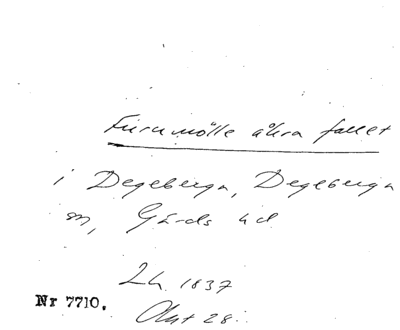 Furumölle åkra fallet
i Degeberga, Degeberga
sn, Gärds hd
Lh. 1837
Nr 7710.
Okt 28.